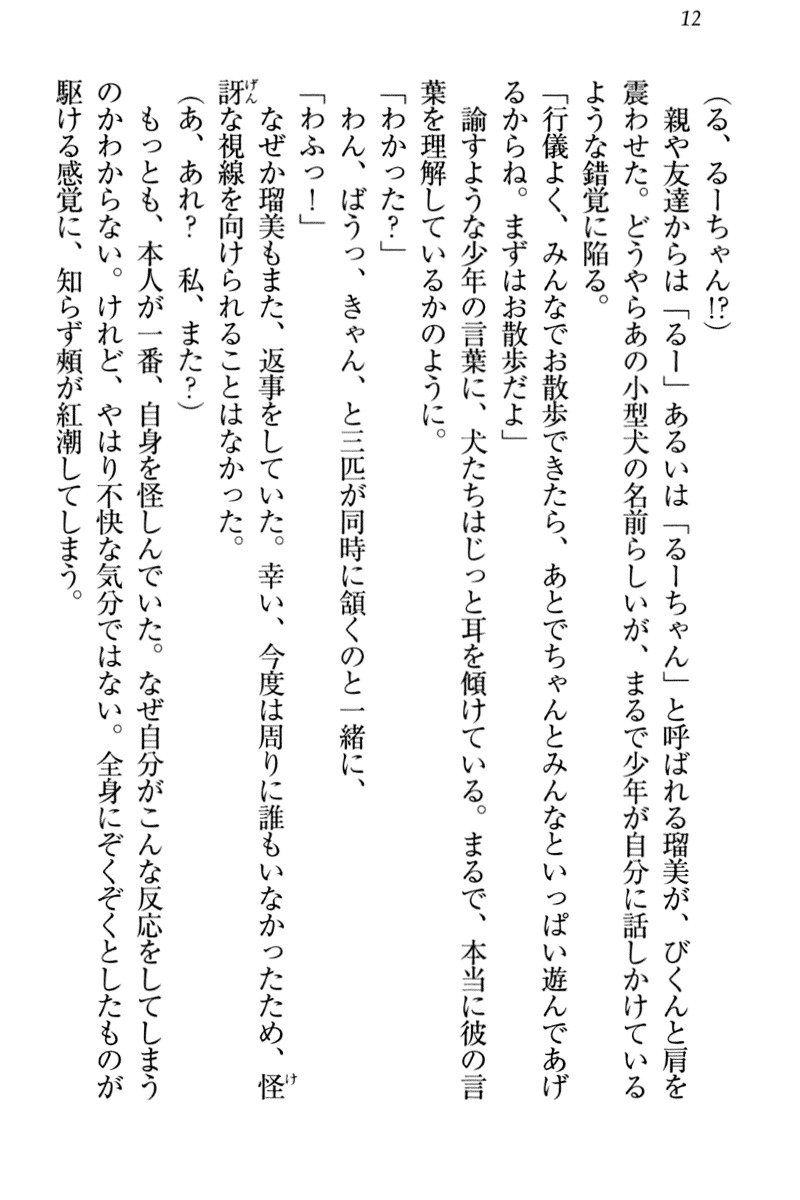 12
(る、るーちゃん!?)
　親や友達からは「るー」あるいは「るーちゃん」と呼ばれる瑠美が、びくんと肩を
震わせた。どうやらあの小型犬の名前らしいが、まるで少年が自分に話しかけている
ような錯覚に陥る。
「行儀よく、みんなでお散歩できたら、あとでちゃんとみんなといっぱい遊んであげ
るからね。まずはお散歩だよ」
　諭すような少年の言葉に、犬たちはじっと耳を傾けている。まるで、本当に彼の言
葉を理解しているかのように。
「わかった?」
　わん、ばうっ、きゃん、と三匹が同時に頷くのと一緒に、
「わふっ!」
　なぜか瑠美もまた、返事をしていた。幸い、今度は周りに誰もいなかったため、怪け
訝げんな視線を向けられることはなかった。
(あ、あれ?　私、また?)
　もっとも、本人が一番、自身を怪しんでいた。なぜ自分がこんな反応をしてしまう
のかわからない。けれど、やはり不快な気分ではない。全身にぞくぞくとしたものが
駆ける感覚に、知らず頰が紅潮してしまう。